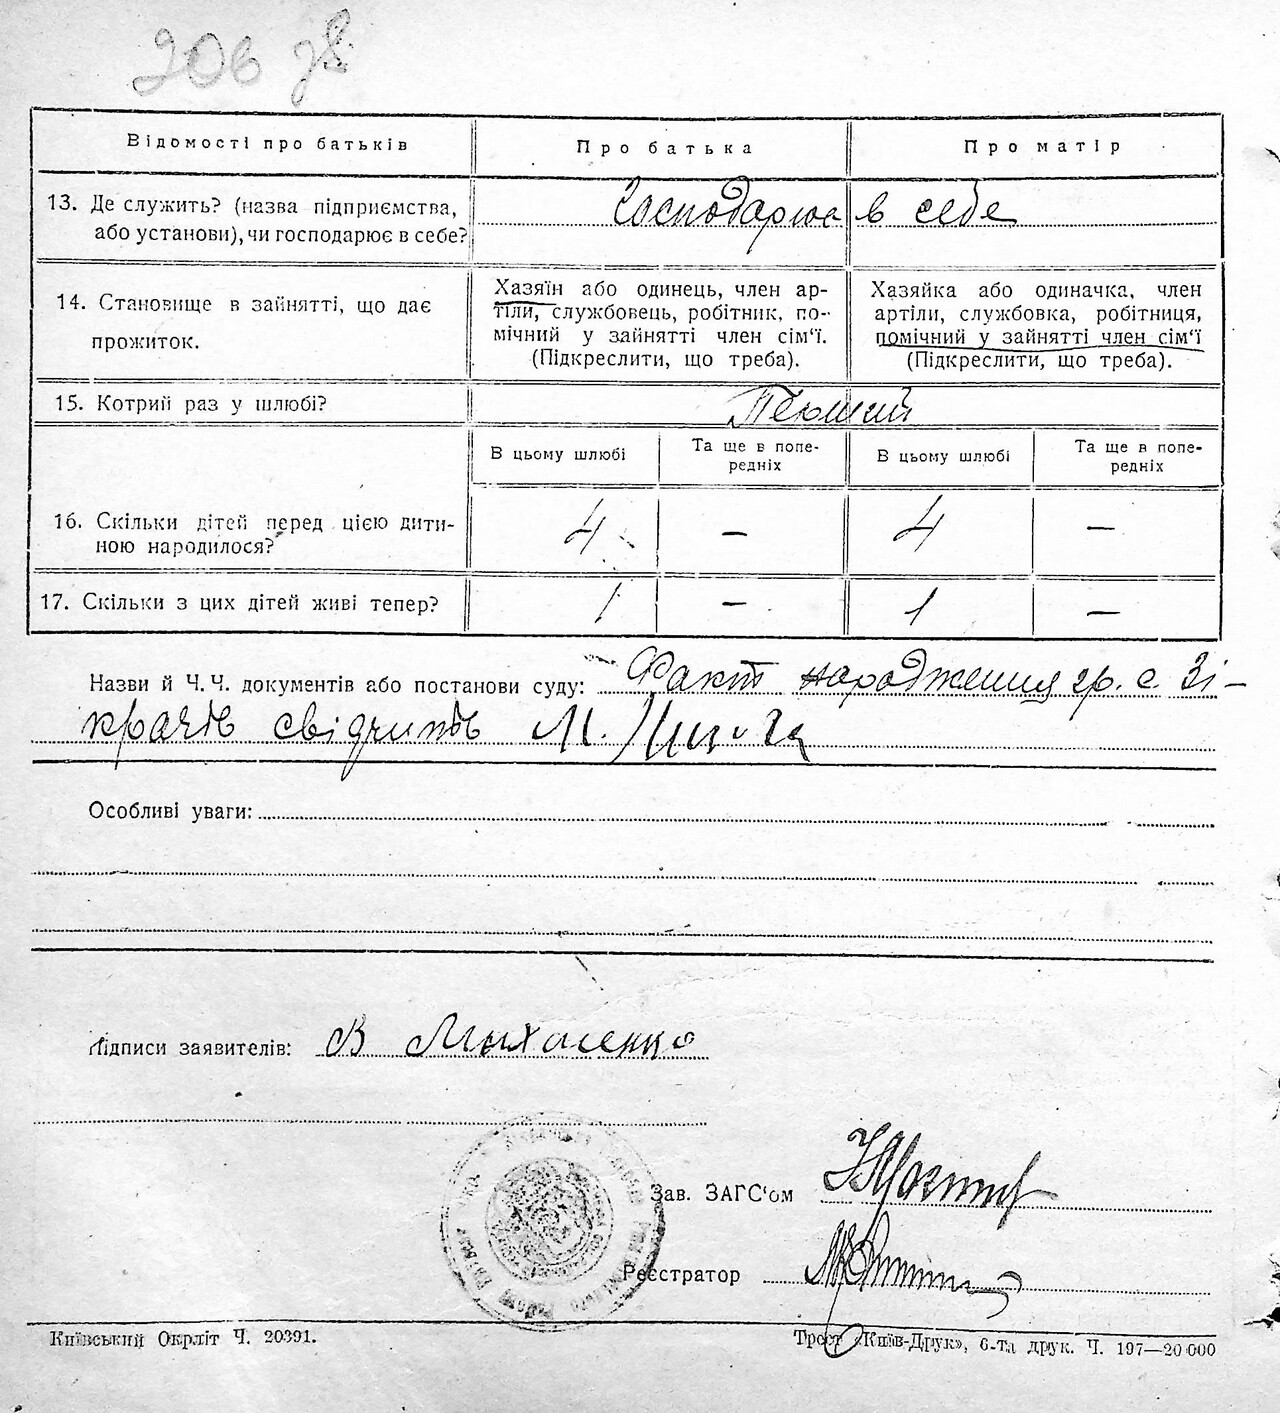 206 зв.
Відомості про батьків
Про батька
Про матір
13. Де служить? (назва підприємства,
або установи), чи господарює в себе?
Господарює в себе
14. Становище в зайнятті, що дає
прожиток.
Хазяїн або одинець, член ар-
тіли, службовець, робітник, по-
мічний у зайнятті член сім'ї.
(Підкреслити, що треба).
Хазяйка або одиначка, член
артіли, службовка, робітниця,
помічний у зайнятті член сім'ї
(Підкреслити, що треба).
15. Котрий раз у шлюбі?
В цьому шлюбі
Та ще в попе-
редніх
В цьому шлюбі
Та ще в попе-
редніх
16. Скільки дітей перед цією дити-
ною народилося?
4 — 4 —
17. Скільки з цих дітей живі тепер?
1 — 1 —
Назви й Ч.Ч. документів або постанови суду: Факт народження гр. с. Зі-
крачів свідчить М.
Особливі уваги:
Підписи заявителів: В Михасенко
Зав. ЗАГС'ом
Реєстратор
Київський Окрліт Ч. 20391.
Трест «Київ-Друк», 6-та друк. Ч. 197—20000